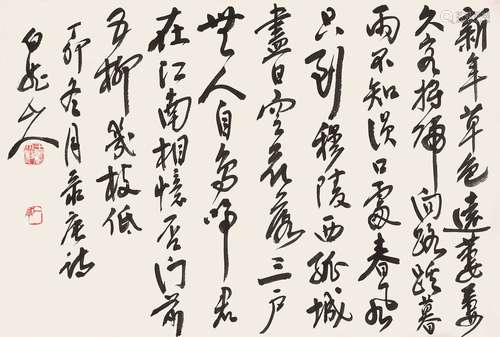 新年草色遠萋萋
久客將歸问路蹊暮
雨不知溳口處春風
只到穆陵西孤城
盡日空花落三户
無人自鳥啼君
在江南相憶否門前
五柳幾枝低
丁卯冬月录唐诗
白龙山人